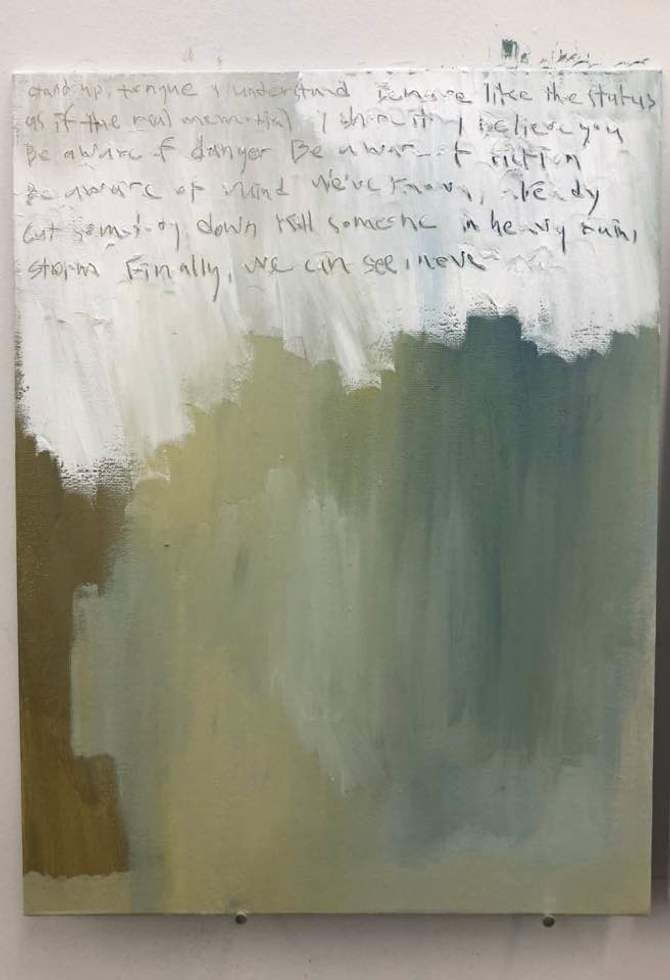 stand up, tongue & understand remove like the status
as if the real memorial I believe you
Be aware of danger Be aware of fiction
Be aware of mind We've known, already
Cut down kill someone in heavy rain,
storm Finally, we can see, never